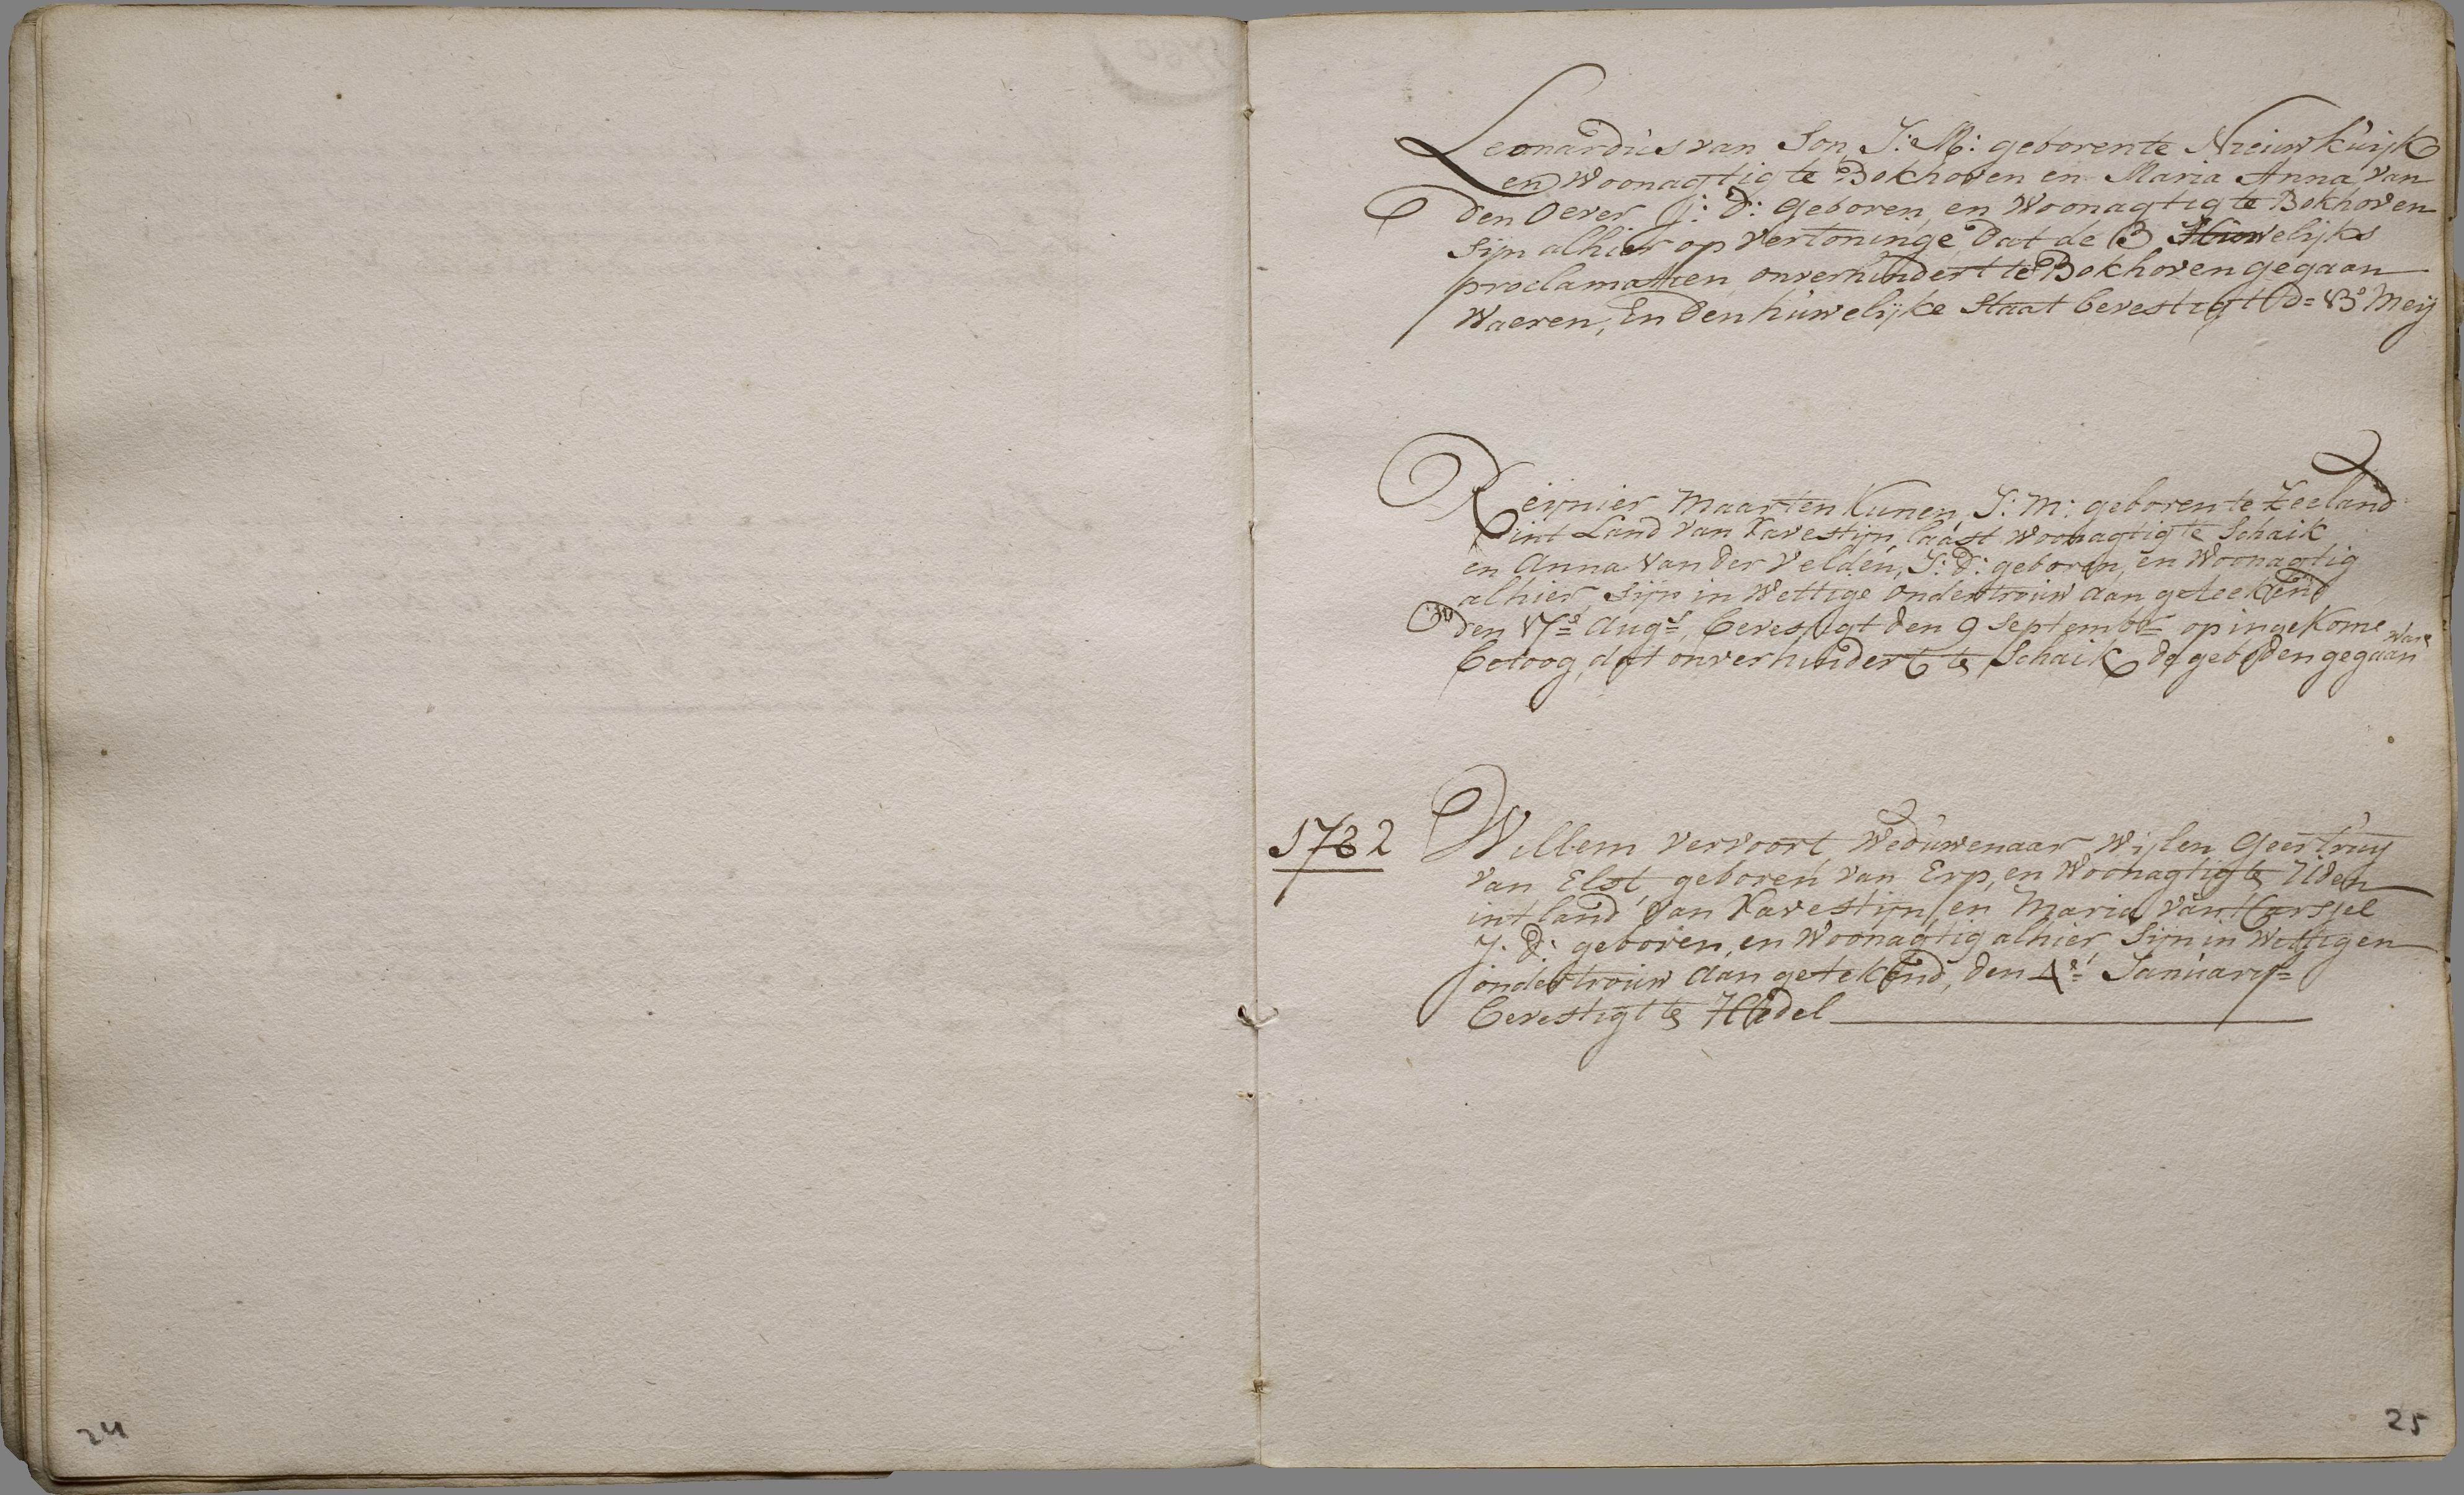 Leonardus van Son, J: M: geboren te Nieuwkuijk
en Woonagtig te Bokhoven en Maria Anna van
den Oever J: D: Geboren en Woonagtig te Bokhoven
sijn alhier op Vertoninge dat de 3 Huwelijks
proclamatien onverhindert te Bokhoven gegaan
Waeren, En den huwelijke Staat bevestigt d= 13e Meij
Reijnier Maarten Kunen J: M: geboren te Zeeland
int Land van Ravestijn, laast woonagtig te Schaik
en Anna van der Velden, J: D: geboren, en Woonagtig
alhier, sijn in Wettige ondertrouw aan geteekend
den 17e Augs, bevestigt den 9 Septembr op ingekome
betoog, dat onverhindert te Schaik de geboden gegaan ware
1782
Willem Vervoort Weduwenaar Wijlen Geertruy
van Elst geboren van Erp, en Woonagtig te Uden
int land van Ravestijn, en Maria van
J. D: geboren, en Woonagtig alhier Sijn in Wettigen
ondertrouw aan getekend, den 4e January
bevestigt te Hedel
24
25